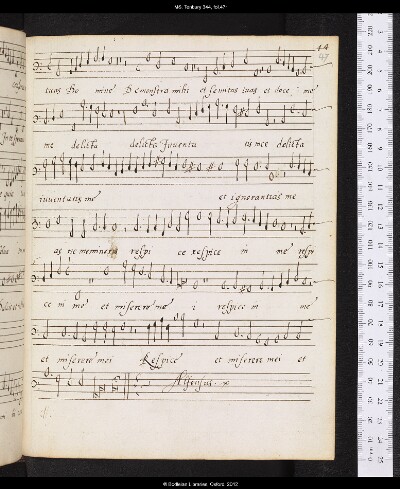 MS. Tenbury 344, fol.47r
44
47
tuas Do mine Demonstra mihi et semitas tuas et doce me
me delicta delicta Juventu tis mee delicta
iuventutis me et ignorantias me
as ne memineris respi ce respice in me respi
ce in me et miserere me i respice in me
et miserere mei Respice et miserere mei et
Alfonsus
© Bodleian Libraries, Oxford, 2012